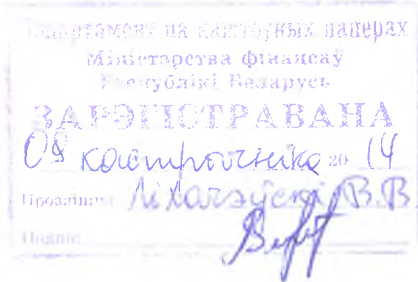 Дэпартамент па каштоўных паперах
Міністэрства фінансаў
Рэспублікі Беларусь
ЗАРЭГІСТРАВАНА
09 кастрычніка 20 14
Прозвішча Ліхачэўскі В.В.
Подпіс